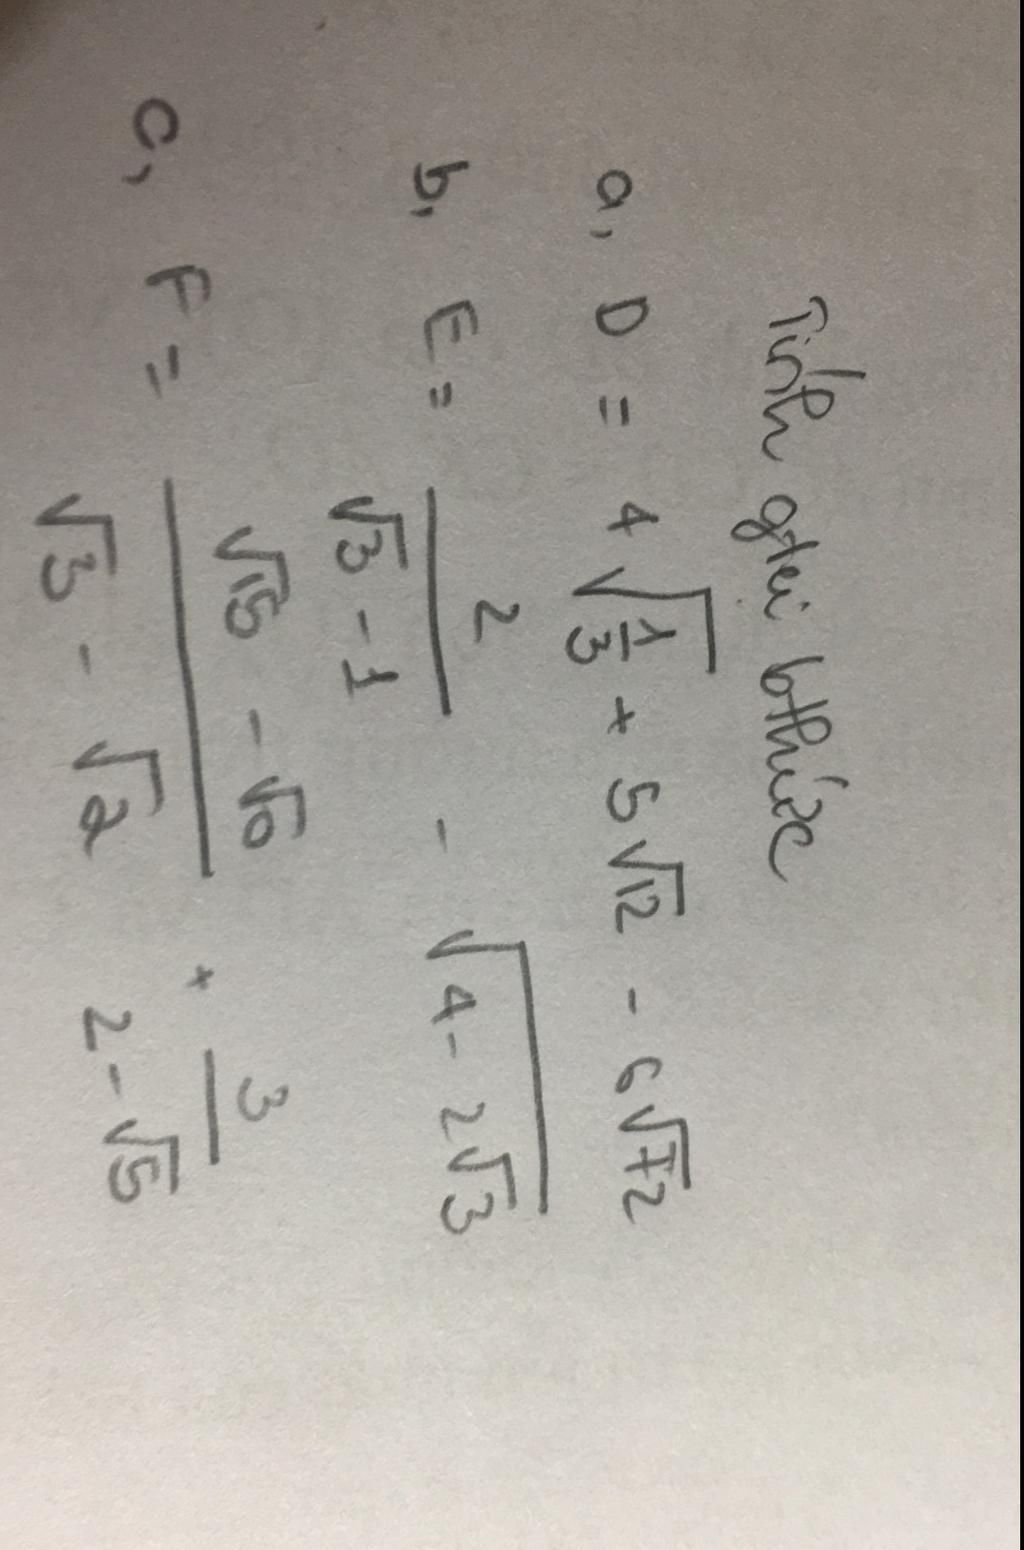 Tính gtri bthức
a, D = 4√(1/3) + 5√12 - 6√72
b, E = 2/(√3 - 1) - √(4 - 2√3)
c, F = (√15 - √6)/(√3 - √2) + 3/(2 - √5)